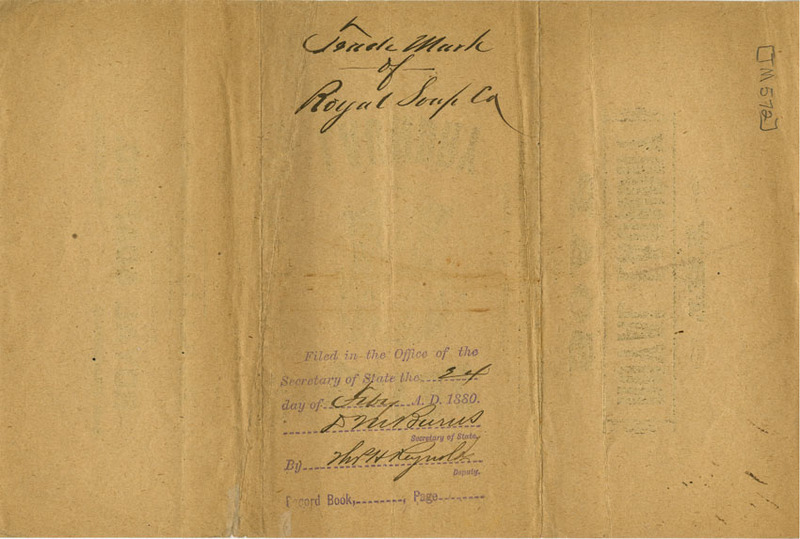 Trade Mark
of
Royal Soap Co
[TM 572]
Filed in the Office of the
Secretary of State the 24
day of Feby A. D. 1880.
D M Burns
Secretary of State,
By Thos H Reynolds
Deputy.
Record Book, , Page